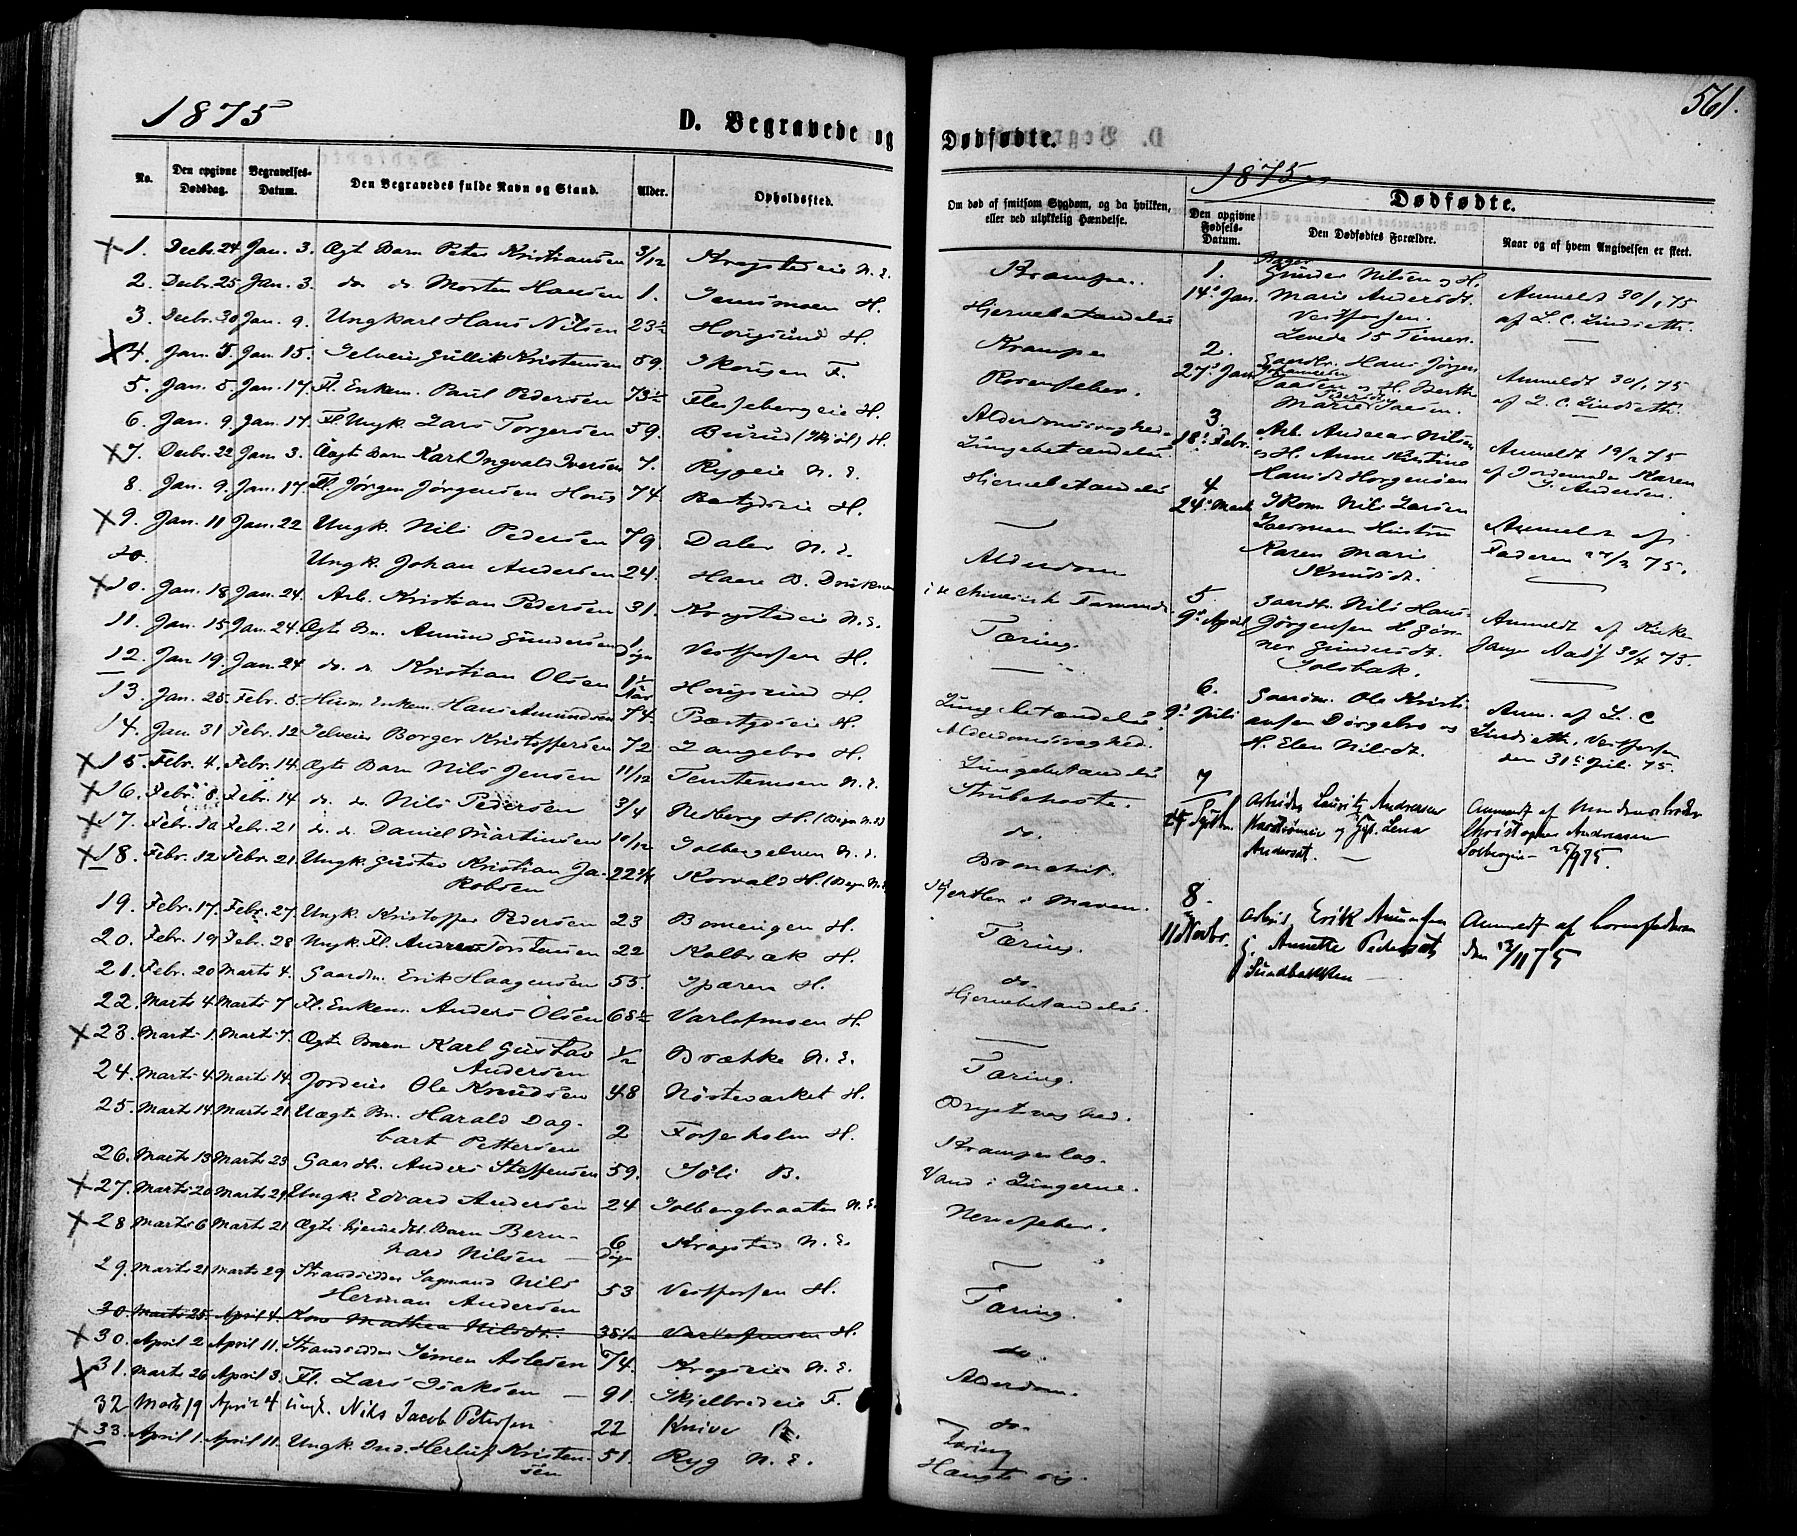 1875
D. Begravede og Dødfødte.
561.
No.
Den opgivne Dødsdag.
Begravelses-Datum.
Den Begravedes fulde Navn og Stand.
Alder.
Opholdssted.
Om død af smitsom Sygdom, og da hvilken, eller ved ulykkelig Hændelse.
1. Decbr. 24 Jan. 3. Ægt Barn Peter Kristiansen 3/12 Kragstadeie N. E. Krampe.
2. Decbr. 25 Jan. 3. do d. Morten Hansen 1. H. Hjernebetændelse
3. Decbr. 30 Jan. 9. Ungkarl Hans Nilsen 23½ Horigsund H. Krampe
4. Jan. 5. Jan. 15. Selveier Gullik Kristensen 59. Skougen F. Rosenfeber.
5. Jan. 5. Jan. 17. Fl. Enkem. Paul Pedersen 73½ Flesebergeie H. Alderdomssvaghed.
6. Jan. 9. Jan. 17. Fl. Ungk. Lars Torgersen 59. Burud (Skjøl) H. Lungebetændelse
7. Decbr. 22 Jan. 3. Uægt Barn Karl Ingvald Iversen 7. Rygeie N. E. Hjernebetændelse
8. Jan. 9. Jan. 17. Fl. Jørgen Jørgensen Hous 74 H. —
9. Jan. 11 Jan. 22 Ungk. Nils Pedersen 79. Daler N. E. Alderdom
10. Ungk. Johan Andersen 24. Haare B.
10. Jan. 18 Jan. 24. Arb. Kristian Pedersen 31. Kragstadeie N. E. Tæring.
11. Jan. 15. Jan. 24. Ægte Bn. Amund Gundersen 1 Døgn Vestfossen H. —
12. Jan 19. Jan. 24 do. d. Kristian Olsen 1½ Aar Horigsund H. Lungebetændelse
13. Jan. 25 Febr. 5. Enkem. Hans Amundsen 74. H. Alderdomssvaghed.
14. Jan. 31 Febr. 12 Selveier Borger Kristoffersen 72 Langebro H. Lungebetændelse
15. Febr. 4. Febr. 14. Ægte Barn Nils Jensen 11/12 Temtemoen N. E. Strubehoste.
16. Febr. 8. Febr. 14 do. d. Nils Pedersen 3/4 Nedberg H. (Begr. N. E) do.
17. Febr. 10 Febr. 21 d. d. Daniel Martinsen 10/12 Solbergelven N. E. Bronchit.
18. Febr. 12 Febr. 21 Ungk. Gustav Kristian Ja-
kobsen 22¾ Korvald H. (Begr. N. E) Kjertler i Maven.
19. Febr. 17. Febr. 27. Ungk. Kristoffer Pedersen 23 Bomengen H. Tæring.
20. Febr. 19 Febr. 28 Ungk. Fl. Andreas Torstensen 22 Kolbræk H. do.
21. Febr. 20 Marts 4. Gaardm. Erik Haagensen 55. Spæren H. Hjernebetændelse.
22. Marts 4 Marts 7 Fl. Enkem. Anders Olsen 68½ Varlofmoen H. —
23. Marts 1. Marts 7. Ægte Barn Karl Gustav
Andersen ½ Brække N. E. Tæring.
24. Marts 4. Marts 14. Jordeier Ole Knudsen 48 Nøstevarket H. Brystsvaghed.
25. Marts 14. Marts 21. Uægte Bn. Harald Dag-
bart Pettersen 2 Fosseholm H. Krampeslag.
26. Marts 13 Marts 23 Gaardbr. Anders Steffensen 59. Søli B. Vand i Lungerne.
27. Marts 20 Marts 29 Ungk. Edvard Andersen 24 Solbergbraaten N. E. Nervefeber.
28 Marts 6 Marts 21 Ægte hjemedøbt Barn Bern-
hard Nilsen 6 Døgn Kragstad N. E. —
29. Marts 21 Marts 29 Strandsidder Sagmand Nils
Herman Andersen 53 Vestfossen H. Tæring.
30. Marts 25. April 4. Kone Mathea Nilsdt. Varlofmoen H. do.
30. April 2 April 11. Strandsidder Simen Aslesen 74. Kragseie N. E. Alderdom.
31. Marts 26 April 3. Fl. Lars Isaksen — 91. Skjelbredeie F. do.
32 Marts 19 April 4 Ungk. Nils Jacob Petersen 22 Knive B. Tæring
33. April 1. April 11. Ungk. Ind. Herluf Kristen-
sen 51. Ryg N. E. Hængte sig.
1875
Dødfødte.
Den opgivne Fødsels-Datum.
Den Dødfødtes Forældre.
Naar og af hvem Angivelsen er skeet.
1.
14. Jan. Gunder Nilsen og H.
Marie Andersdt.
Vestfossen.
Levede 15 Timer.
Anmeldt 30/1 75
af L. C. Lindseth.
2.
27. Jan. Gaardbr. Hans Jørgen
Johannesen
og H. Berthe
Marie Pedersdtr
Anmeldt 30/1 75
af L. C. Lindseth.
3.
18. Febr. Arb. Andreas Nilsen
og H. Anne Kristine
Hansdt. Horgensøen
Anmeldt 19/2 75
af Jordemoder Karen
Andersen.
4
24. Marts Skom. Nils Larsen
Hustru
Karen Marie
Knudsdt.
Anmeldt af
Faderen 27/3 75.
5
9. April Gaardbr. Nils Hans
Jørgensen H.
Gundersdt.
Solsbak.
Anmeldt af Kirke-
sanger Aass 30/4 75.
6.
9. Juli Gaardm. Ole Kristi-
ansen Dørgebro og
H. Elen Nilsdt.
Anm. af L. C.
Lindseth, Vestfossen
den 31. Juli 75.
7
24 Septbr. Arbeider Lauritz Andreasen
og Lena
Andersdt. —
Anmeldt af Mandens broder
Christopher Andreasen
Solbergeie 25/9 75
8.
11 Novbr. Arbeid. Erik Amundsen
g. Annette Pedersdt
Sundbakken —
Anmeldt af barnefaderen
den 13/11 75